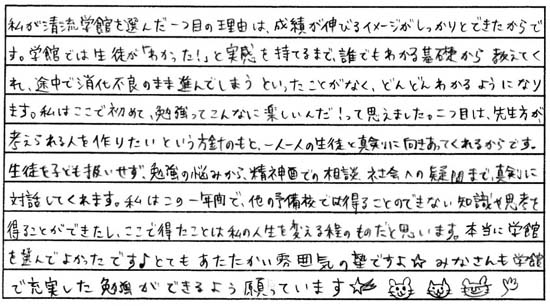 私が清流学館を選んだ一つ目の理由は、成績が伸びるイメージがしっかりとできたからで
す。学館では生徒が「わかった!」と実感を持てるまで、誰でもわかる基礎から教えてく
れ、途中で消化不良のまま進んでしまうといったことがなく、どんどんわかるようになり
ます。私はここで初めて、勉強ってこんなに楽しいんだ!って思えました。二つ目は、先生方が
考えられる人を作りたいという方針のもと、一人一人の生徒と真剣に向きあってくれるからです。
生徒を子ども扱いせず、勉強の悩みから、精神面での相談、社会への疑問まで、真剣に
対話してくれます。私はこの一年間で、他の予備校では得ることのできない知識や思考を
得ることができたし、ここで得たことは私の人生を変える程のものだと思います。本当に学館
を選んでよかったです♪とてもあたたかい雰囲気の塾ですよ☆みなさんも学館
で充実した勉強ができるよう願っています☆